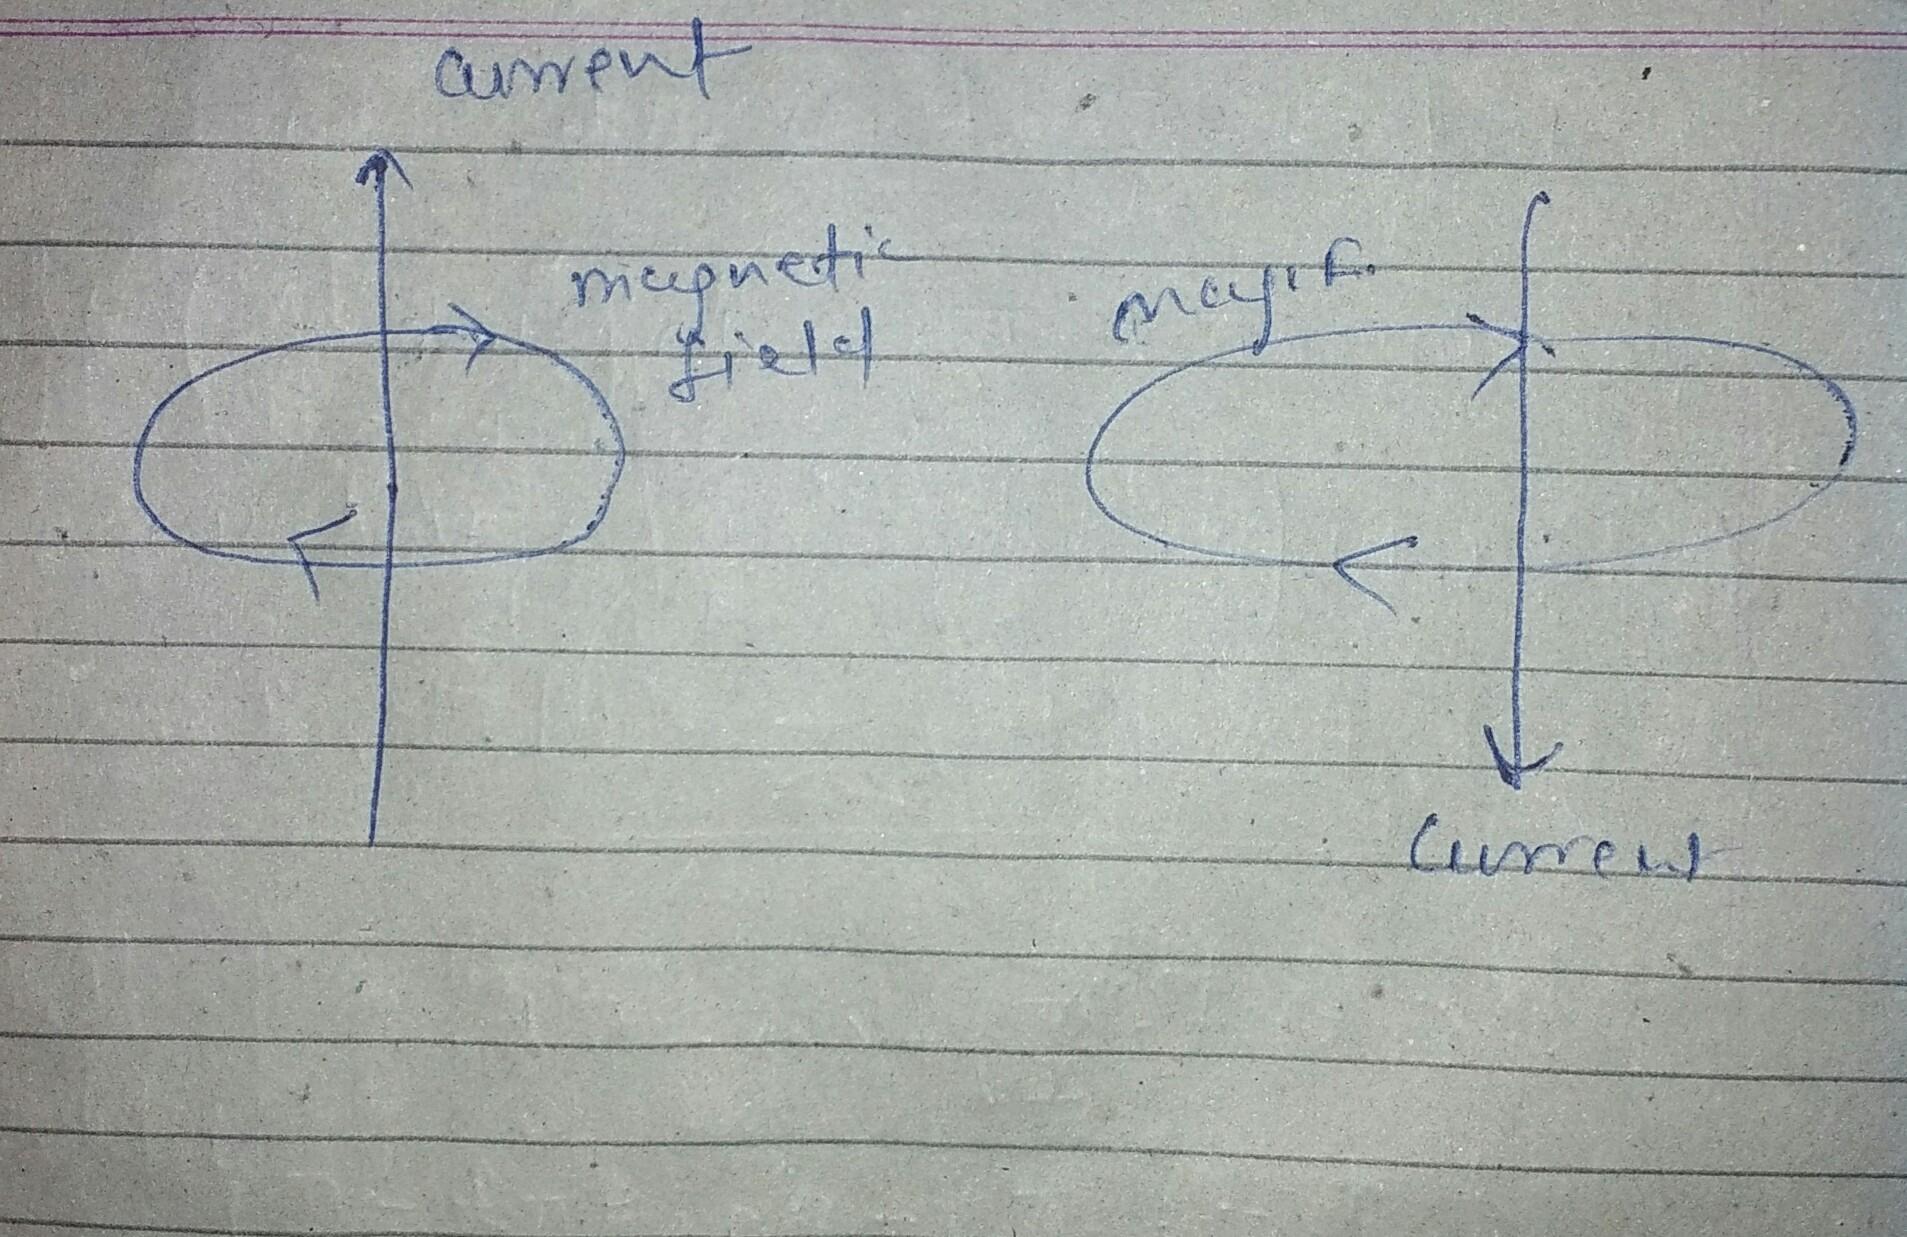 current
magnetic
field
mag. F.
Current